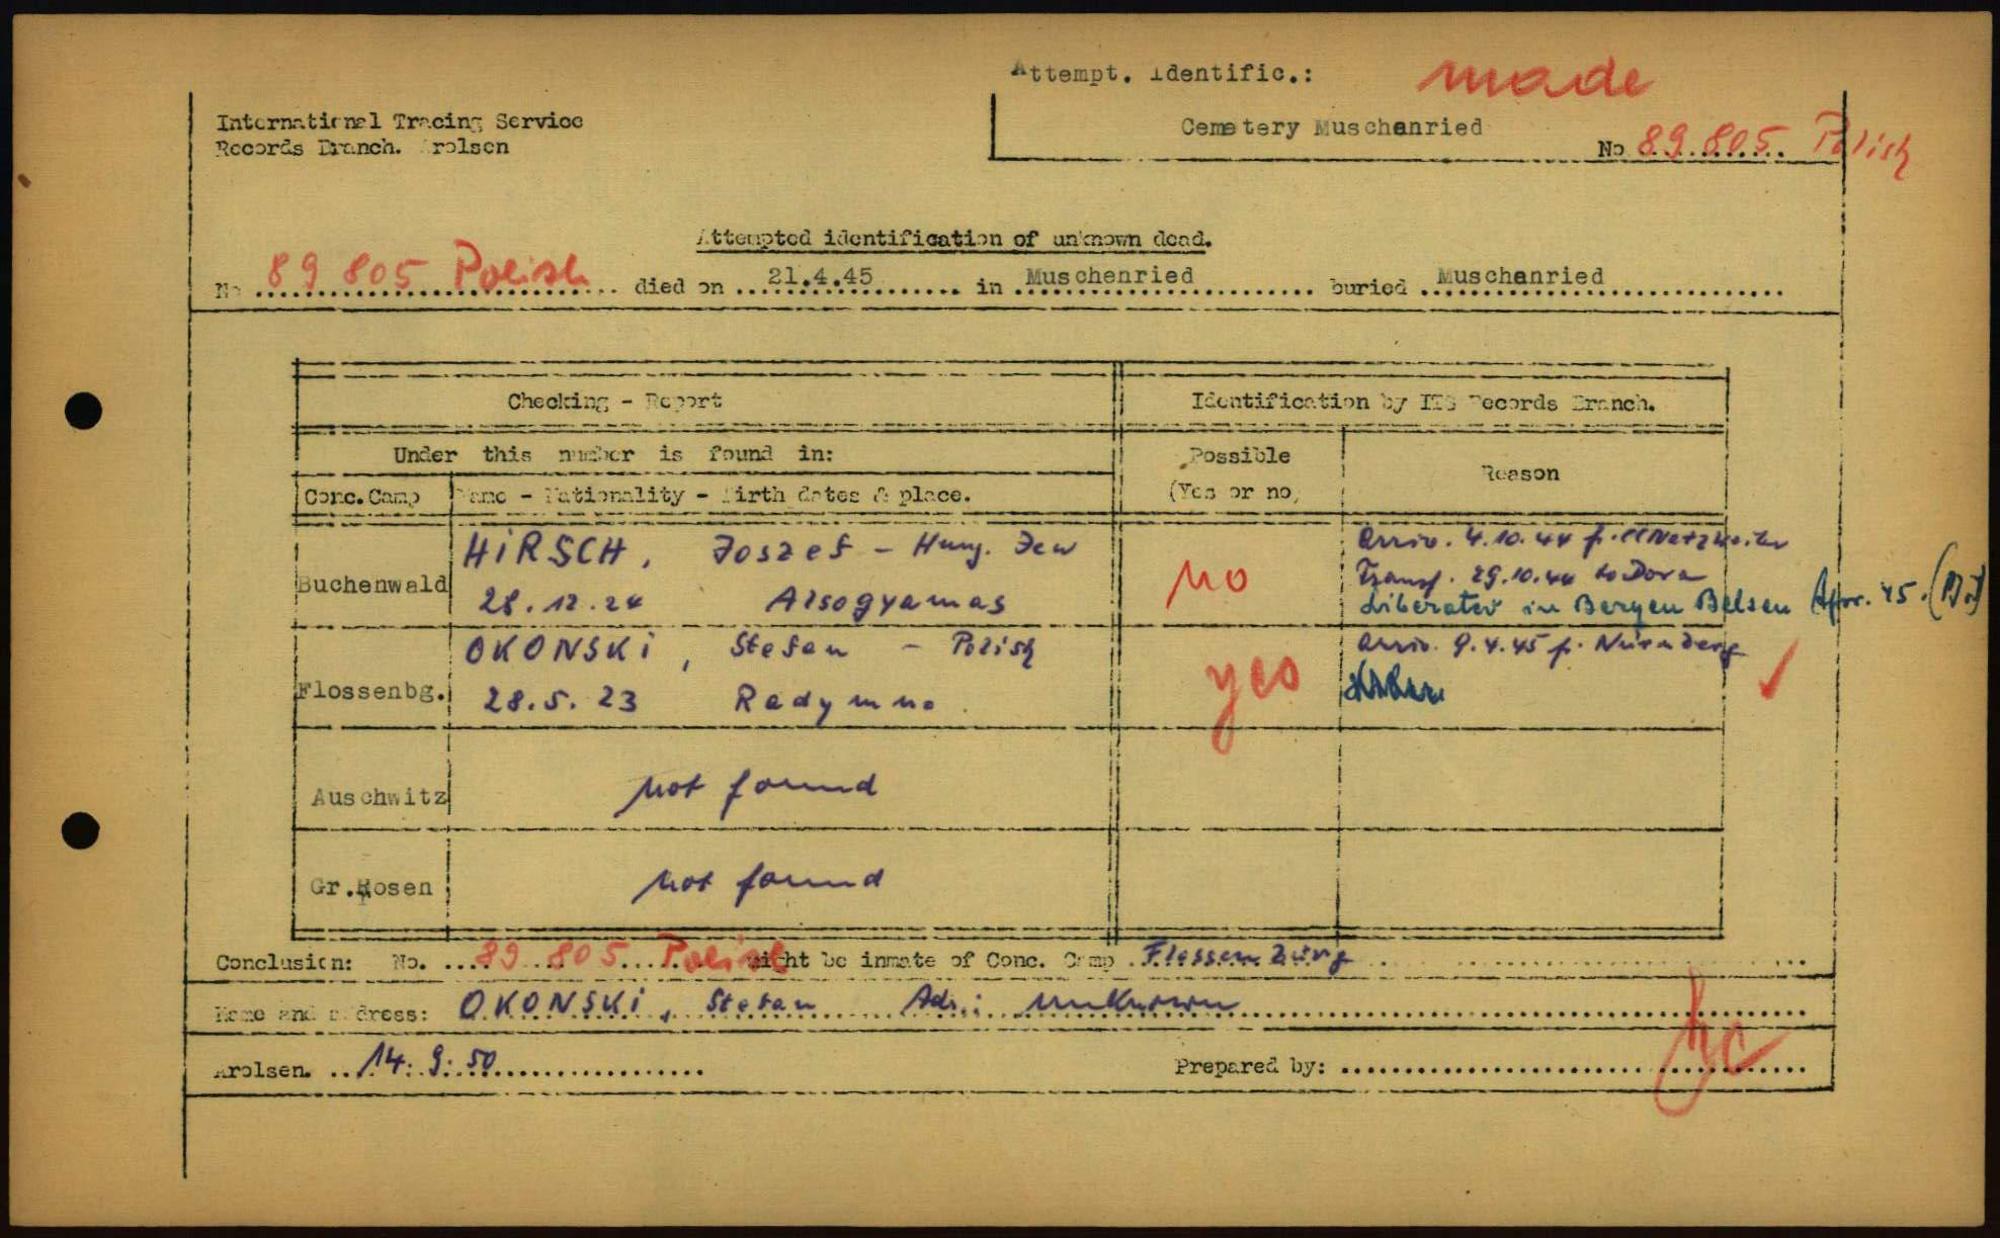 Attempt. Identific.: made
International Tracing Service
Records Branch. Arolsen
Cemetery Muschenried
No 89805 Polish
Attempted identification of unknown dead.
No 89 805 Polish died on 21.4.45 in Muschenried buried Muschenried
Checking - Report
Identification by ITS Records Branch.
Under this number is found in:
Possible (Yes or no)
Reason
Conc.Camp
Name - Nationality - Birth dates & place.
Buchenwald
HIRSCH, Joszef - Hung. Jew
28.12.24 Alsogyamas
no
arriv. 4.10.44 fr. Cl Natzweiler
Transf. 29.10.44 to Dora
Liberated in Bergen Belsen Apr. 45.
Flossenbg.
OKONSKI, Stefan - Polish
28.5.23 Radymno
yes
arriv. 9.4.45 fr. Nürnberg
Auschwitz
not found
Gr.Rosen
not found
Conclusion: No. 89 805 Polish might be inmate of Conc. Camp Flossenbürg
Name and address: OKONSKI, Stefan Adr.: unknown
Arolsen. 14.9.50
Prepared by: